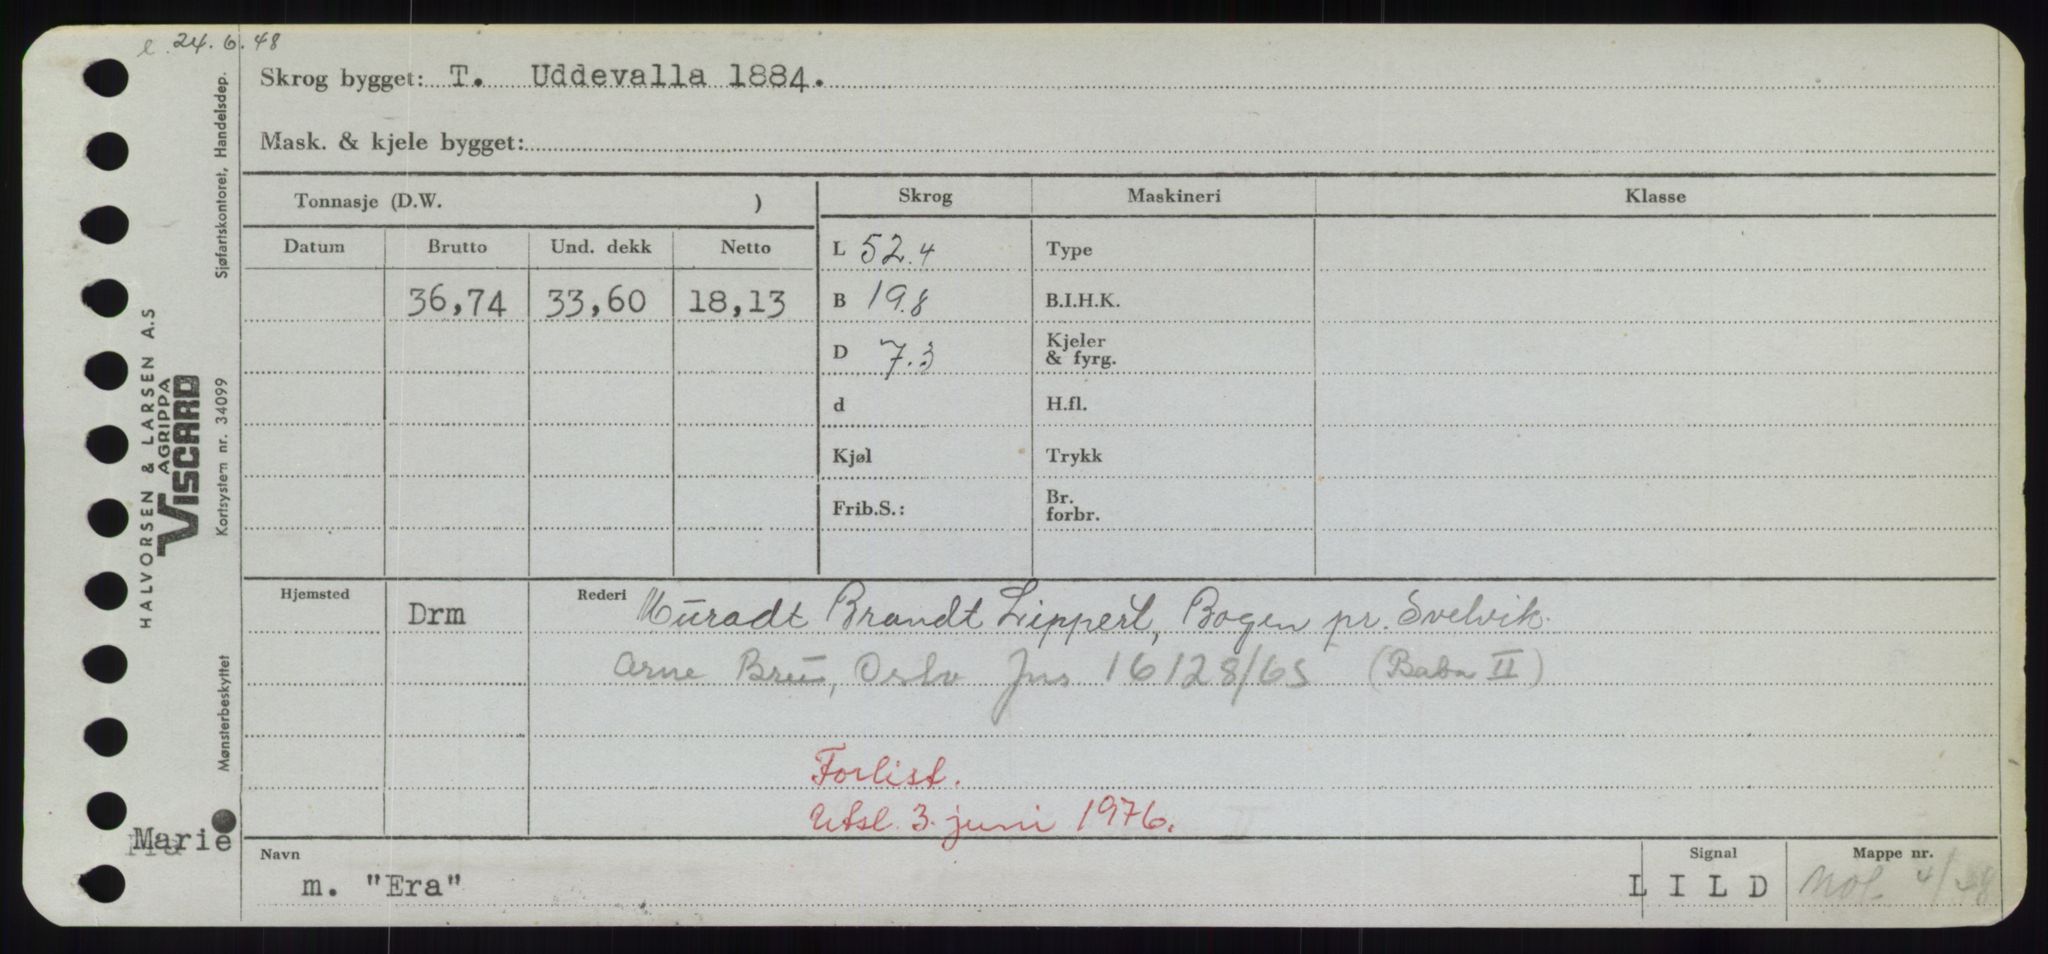 e 24.6.48
Skrog bygget: T. Uddevalla 1884.
Mask. & kjele bygget:
Tonnasje (D.W. )
Datum Brutto Und. dekk Netto
36,74 33,60 18,13
Skrog Maskineri Klasse
L 52.4 Type
B 19.8 B.I.H.K.
D 7.3 Kjeler & fyrg.
d H.fl.
Kjøl Trykk
Frib.S.: Br. forbr.
Hjemsted Drm Rederi Muradt Brandt Lippert, Bogen pr. Svelvik.
Arne Bru, Oslo Jns 16128/65 (Baba II)
Forlist.
Utsl. 3. juni 1976.
II
Marie
Navn Signal Mappe nr.
m. "Era" L I L D Not 4/48
HALVORSEN & LARSEN A.S
AGRIPPA
VISCARD
Sjøfartskontoret, Handelsdep.
Kortsystem nr. 34099
Mønsterbeskyttet